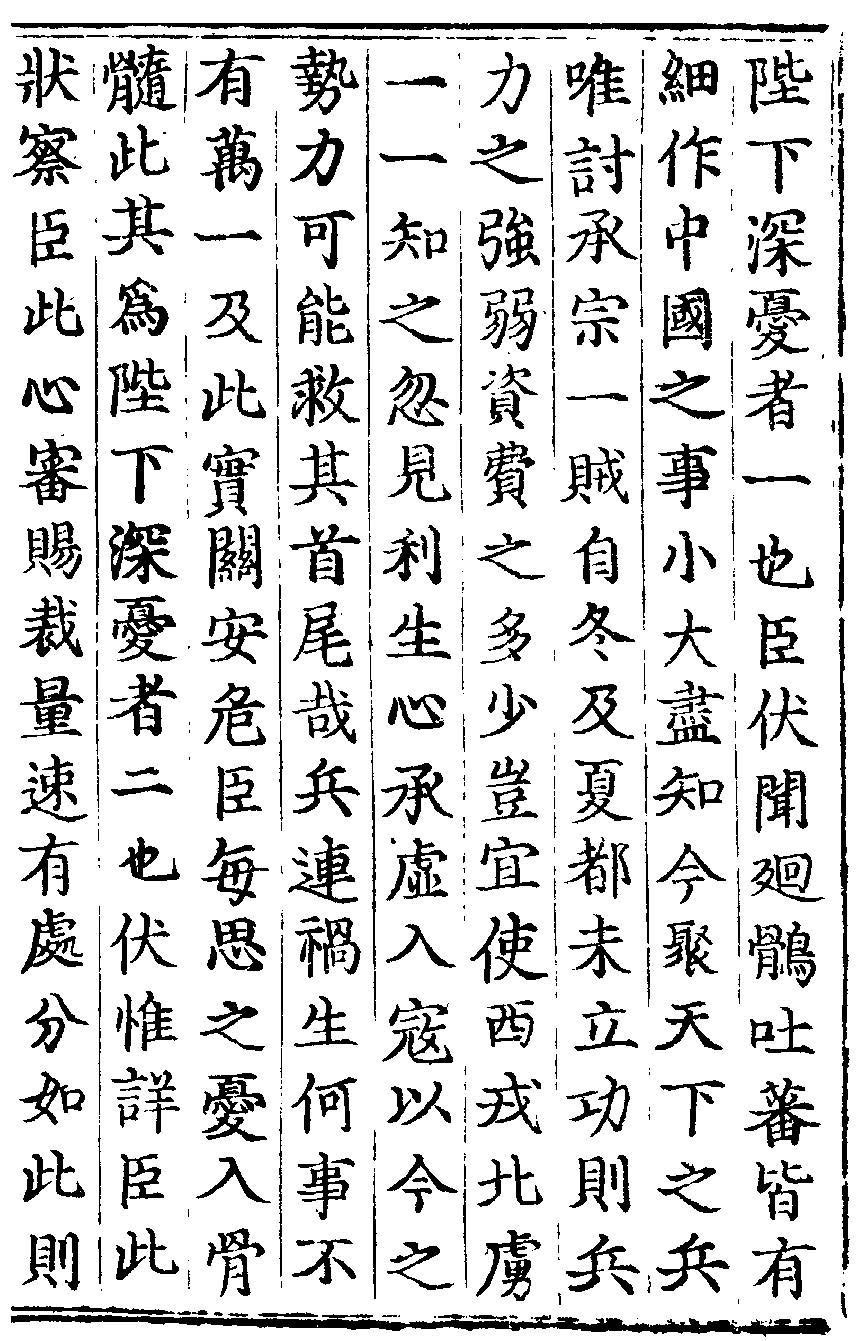 陛下深憂者一也臣伏聞廻鶻吐蕃皆有
細作中國之事小大盡知今聚天下之兵
唯討承宗一賊自冬及夏都未立功則兵
力之強弱資費之多少豈宜使西戎北虜
一一知之忽見利生心承虛入寇以今之
勢力可能救其首尾哉兵連禍生何事不
有萬一及此實關安危臣每思之憂入骨
髓此其爲陛下深憂者二也伏惟詳臣此
狀察臣此心審賜裁量速有處分如此則